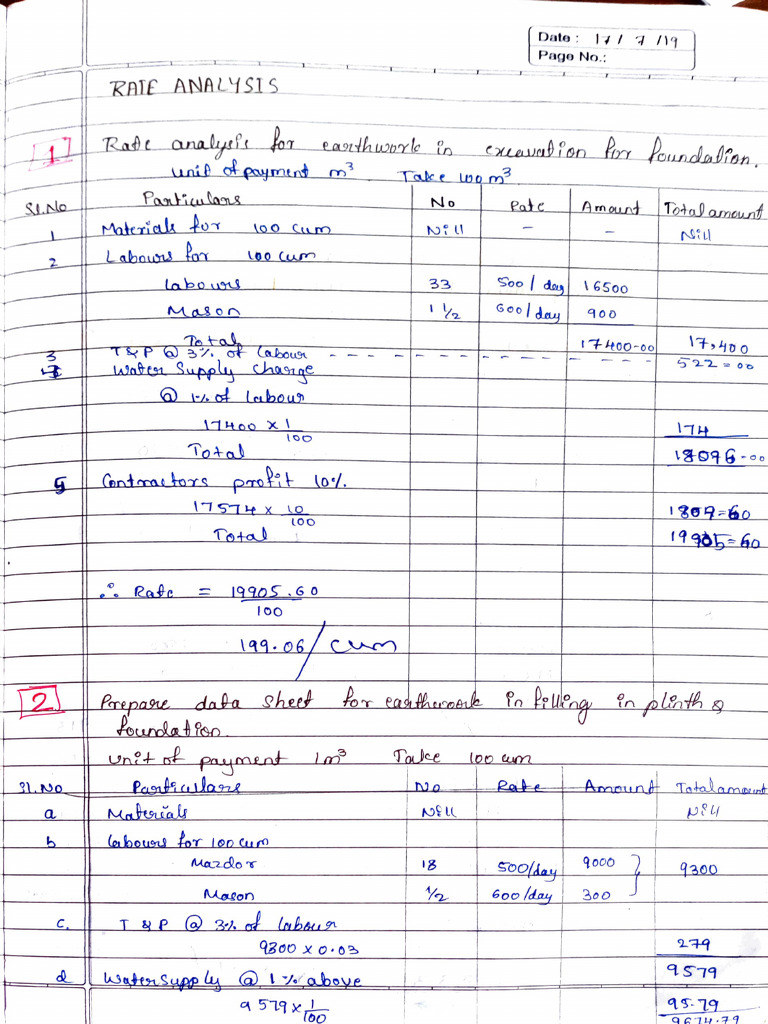 Date : 17/ 7 /19
Page No.:
RATE ANALYSIS
1 Rate analysis for earthwork in excavation for foundation.
unit of payment m³ Take 100 m³
Sl.No Particulars No Rate Amount Total amount
1 Materials for 100 cum Nill - - Nill
2 Labours for 100 cum
labours 33 500/day 16500
Mason 1 1/2 600/day 900
Total 17400-00 17,400
3 T&P @ 3% of labour - - - - - - - - - - - - 522=00
4 Water supply charge
@ 1% of labour
17400 x 1/100 174
Total 18096-00
5 Contractors profit 10%.
17574 x 10/100 1809=60
Total 19905=60
∴ Rate = 19905.60
100
199.06/cum
2 Prepare data sheet for earthwork in filling in plinth &
foundation.
unit of payment 1m³ Take 100 cum
Sl.No Particulars No Rate Amount Total amount
a Materials Nill Nill
b labours for 100 cum
Mazdor 18 500/day 9000 } 9300
Mason 1/2 600/day 300
c. T & P @ 3% of labour
9300 x 0.03 279
9579
d Water supply @ 1% above
9579 x 1/100 95.79
9674.79